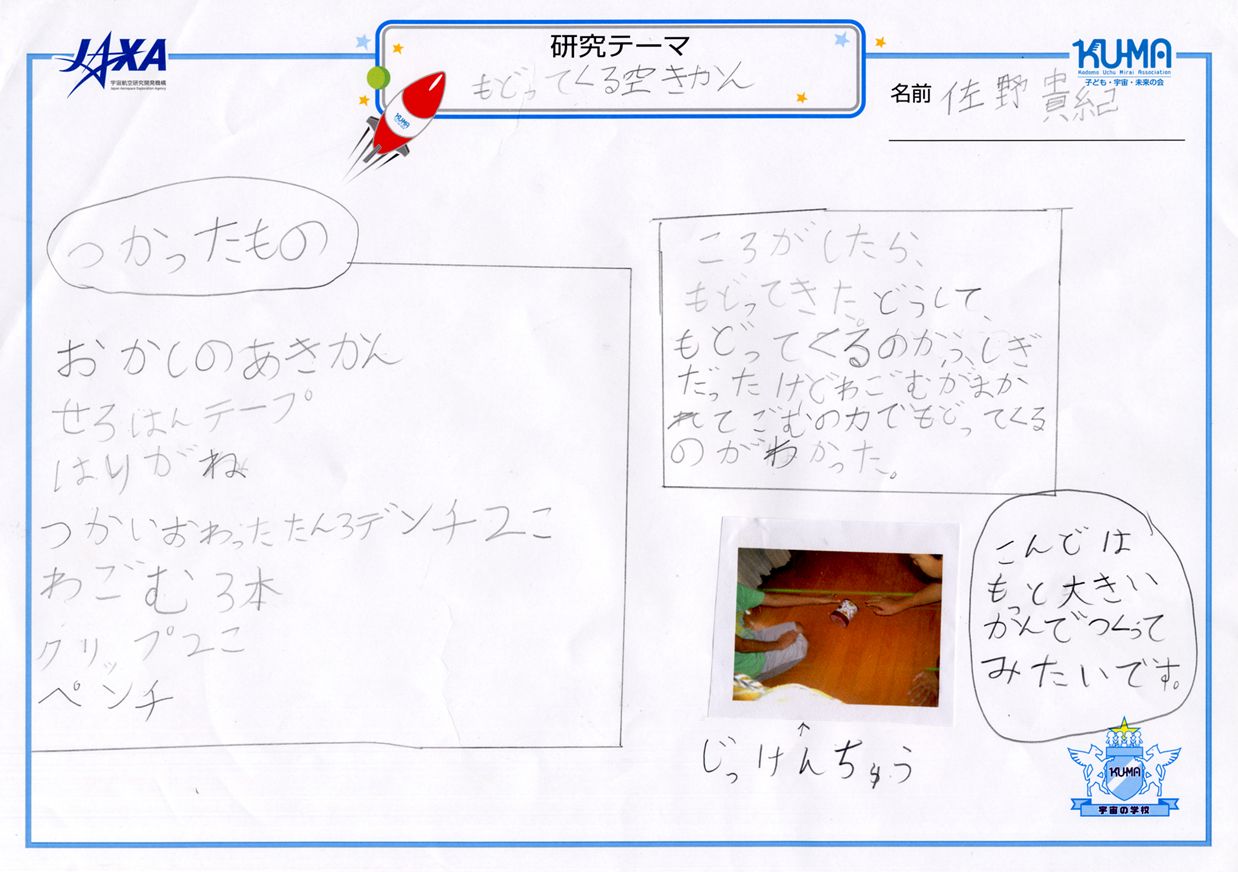 JAXA
宇宙航空研究開発機構
Japan Aerospace Exploration Agency
研究テーマ
もどってくる空きかん
KUMA
KUMA
Kodomo Uchu Mirai Association
子ども・宇宙・未来の会
名前 佐野貴紀
つかったもの
おかしのあきかん
せろはんテープ
はりがね
つかいおわったたんろデンチ2こ
わごむ3本
クリップ2こ
ペンチ
ころがしたら、
もどってきた。どうして、
もどってくるのかふしぎ
だったけどわごむがまか
れてごむの力でもどってくる
のがわかった。
こんでは
もっと大きい
かんでつくって
みたいです。
↑
じっけんちゅう
KUMA
宇宙の学校